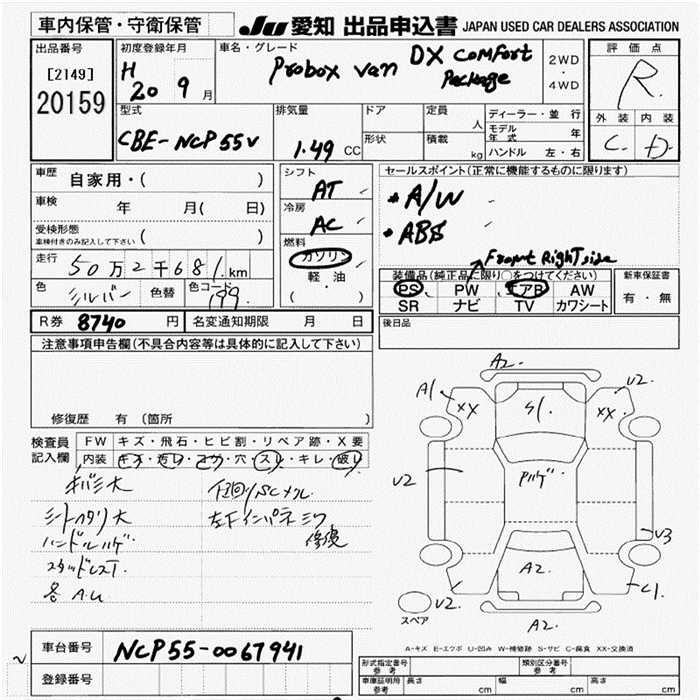 車内保管・守衛保管
JU 愛知 出品申込書 JAPAN USED CAR DEALERS ASSOCIATION
出品番号
[2149]
20159
初度登録年月
H 20 9 月
車名・グレード
Probox van DX comfort
Package
2WD
・
4WD
評価点
R
外装 内装
C D
型式
CBE-NCP55V
排気量
1.49 CC
ドア
形状
定員
人
積載
kg
ディーラー・並行
モデル年式 年
ハンドル 左・右
車歴 自家用・( )
車検 年 月( 日)
受検形態
車検付きのみ記入して下さい ( )
走行 50万2千681 km
色 シルバー 色替 色コード 199
シフト AT
冷房 AC
燃料
ガソリン
軽・油
( )
セールスポイント(正常に機能するものに限ります)
* A/W
* ABS
Front Right side
装備品(純正品に限り○をつけてください)
PS PW エアB AW
SR ナビ TV カワシート
新車保証書
有・無
R券 8740 円 名変通知期限 月 日
後日品
注意事項申告欄(不具合内容等は具体的に記入して下さい)
修復歴 有 (箇所 )
検査員
記入欄
FW キズ・飛石・ヒビ割・リペア跡・X要
内装 キズ・汚レ・コゲ・穴・スレ・キレ・破レ
シートヘタリ大
ハンドルハゲ
各 A.U
A2.
A1
XX
S1.
XX
U2.
U2
ハゲ
U3
A2.
U2.
C1.
スペア
A2.
A-キズ E-エクボ U-凹み W-補修跡 S-サビ C-腐食 XX-交換済
車台番号 NCP55-0067941
登録番号
形式指定番号
参考
類別区分番号
参考
車庫証明用
参考
長さ cm 幅 cm 高さ cm